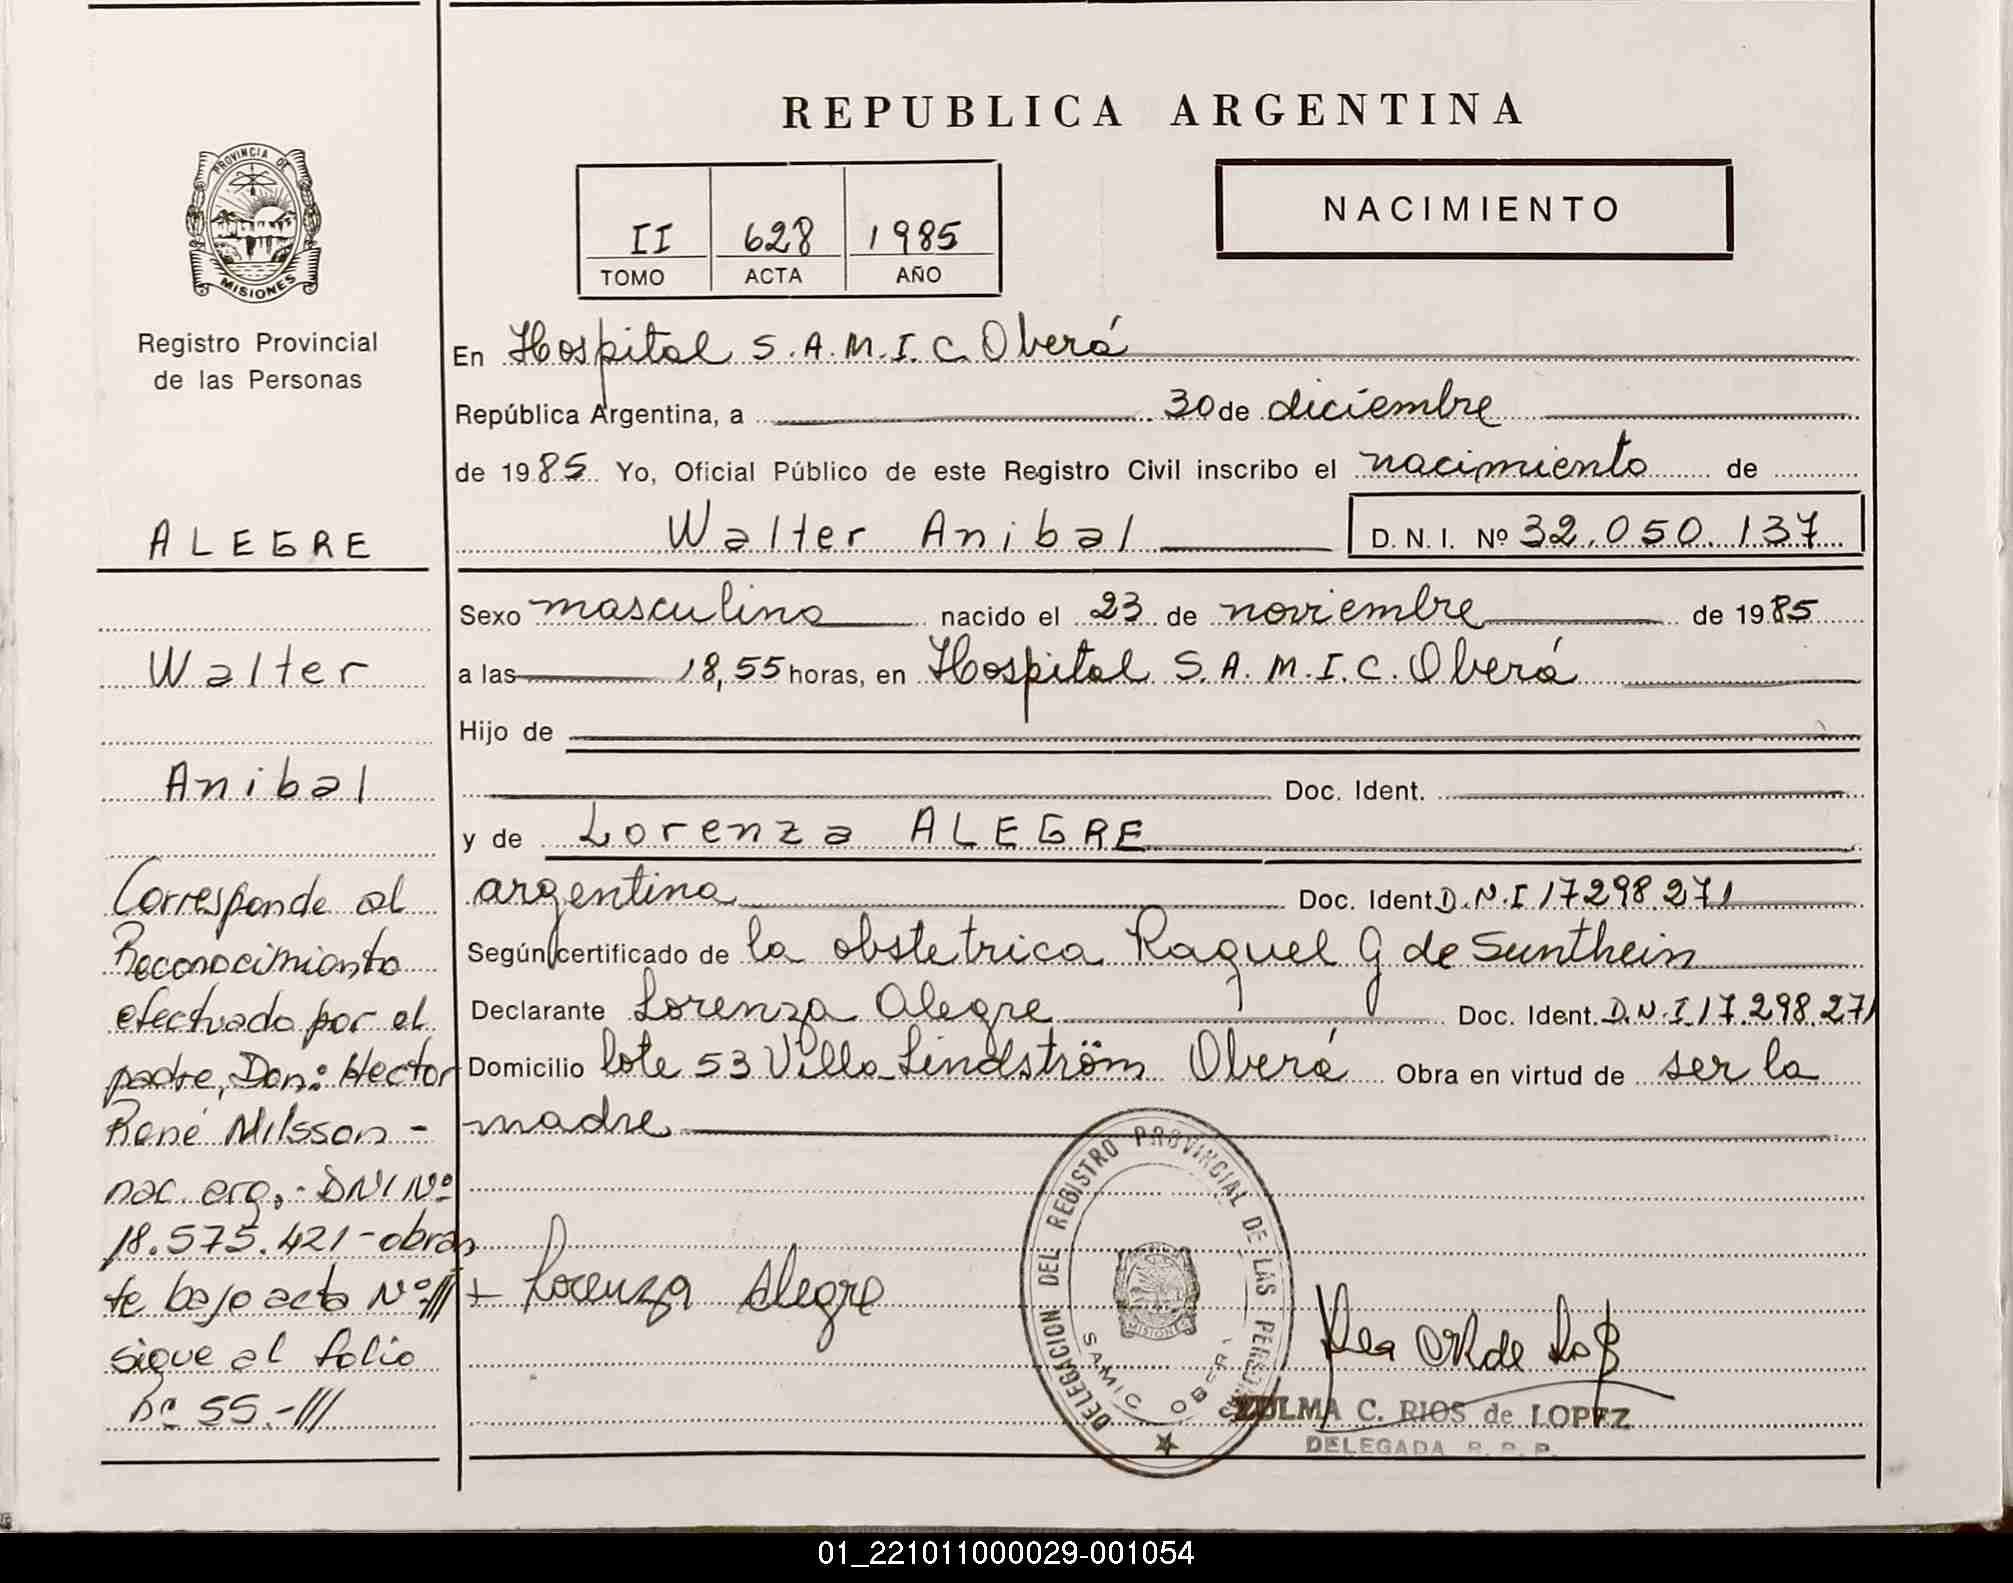 REPUBLICA ARGENTINA
PROVINCIA DE
MISIONES
Registro Provincial
de las Personas
II 628 1985
TOMO ACTA AÑO
NACIMIENTO
En Hospital S.A.M.I.C. Oberá
República Argentina, a 30 de diciembre
de 1985 Yo, Oficial Público de este Registro Civil inscribo el nacimiento de
Walter Anibal D.N.I. Nº 32.050.137
Sexo masculino nacido el 23 de noviembre de 1985
a las 18,55 horas, en Hospital S.A.M.I.C. Oberá
Hijo de
Doc. Ident.
y de Lorenza ALEGRE
argentina Doc. Ident D.N.I 17298.271
Según certificado de la obstetrica Raquel G de Sunthein
Declarante Lorenza Alegre Doc. Ident. D.N.I 17.298.271
Domicilio lote 53 Villa Lindström Oberá Obra en virtud de ser la
madre
+ Lorenza Alegre
DELEGACION DEL REGISTRO PROVINCIAL DE LAS PERSONAS
MISIONES
SAMIC OBERA
ZULMA C. RIOS de LOPEZ
DELEGADA R. P. P.
ALEGRE
Walter
Anibal
Corresponde al
Reconocimiento
efectuado por el
padre, Don: Hector
René Nilsson -
nac. arg.- DNI Nº
18.575.421 - obran
te bajo acta Nº ///
sigue al folio
nº 55.-///
01_221011000029-001054